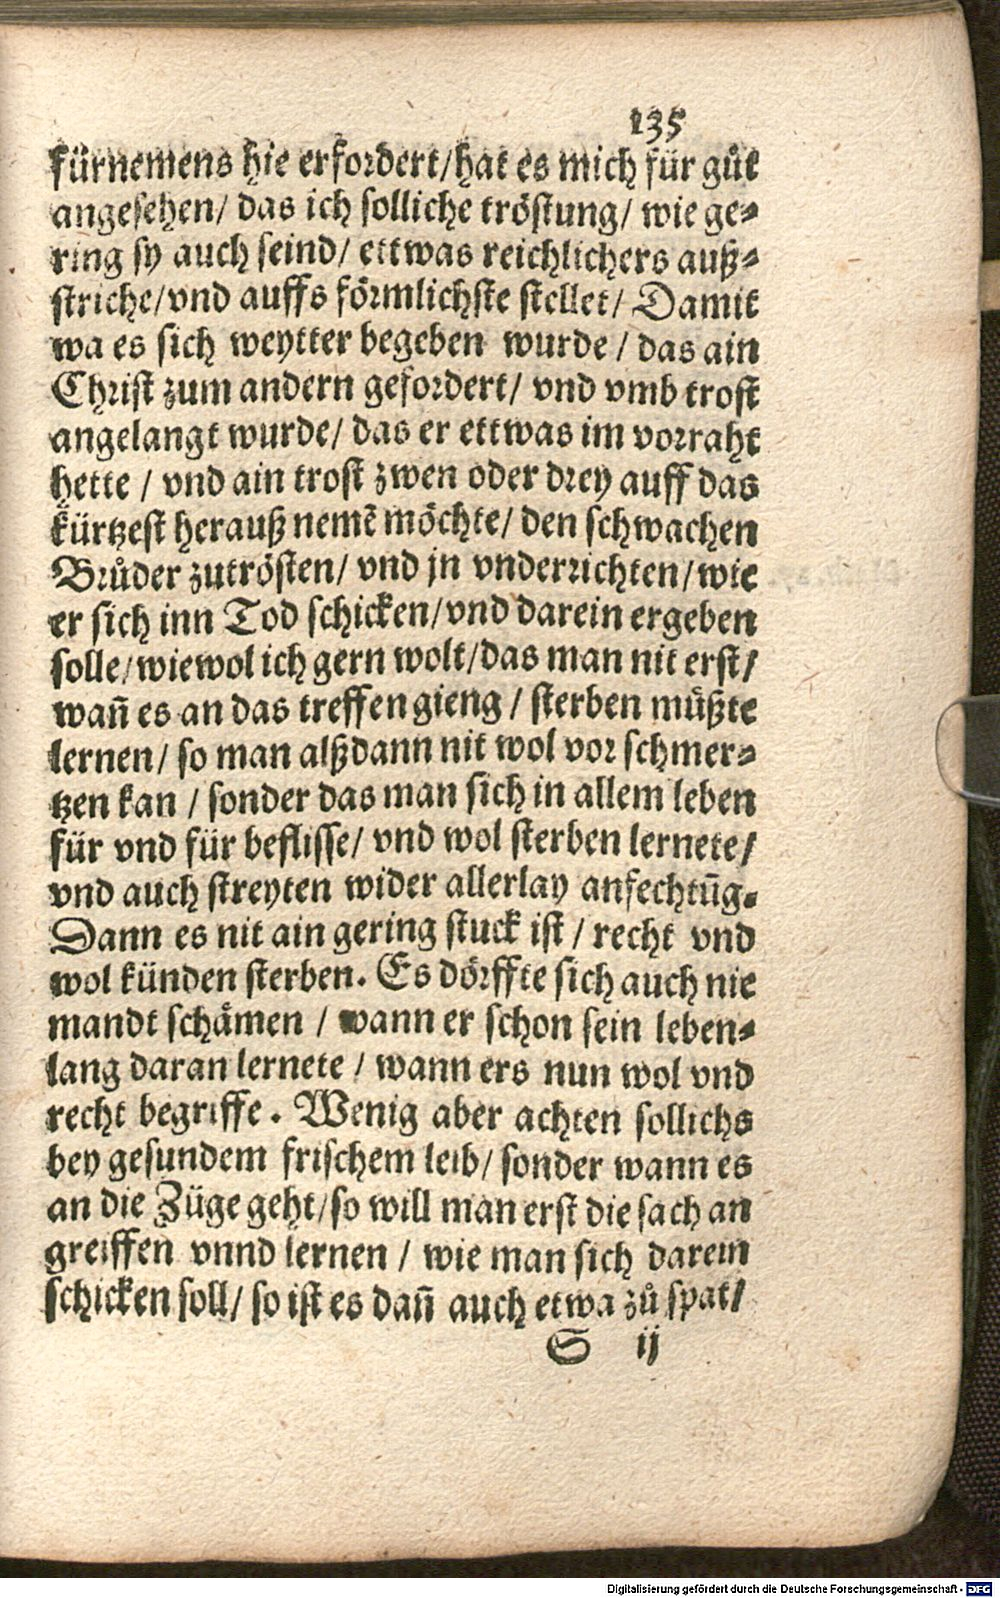 135
fürnemens hie erfordert/hat es mich für gůt
angesehen/ das ich solliche tröstung/ wie ge-
ring sy auch seind/ ettwas reichlichers auß-
striche/vnd auffs förmlichste stellet/ Damit
wa es sich weytter begeben wurde / das ain
Christ zum andern gefordert/ vnd vmb trost
angelangt wurde/ das er ettwas im vorraht
hette / vnd ain trost zwen oder drey auff das
kürtzest herauß nemē möchte/ den schwachen
Brůder zutrösten/ vnd jn vnderrichten/wie
er sich inn Tod schicken/vnd darein ergeben
solle/wiewol ich gern wolt/das man nit erst/
wañ es an das treffen gieng / sterben müßte
lernen/ so man alßdann nit wol vor schmer-
tzen kan / sonder das man sich in allem leben
für vnd für beflisse/ vnd wol sterben lernete/
vnd auch streyten wider allerlay anfechtūg.
Dann es nit ain gering stuck ist / recht vnd
wol künden sterben. Es dörffte sich auch nie
mandt schämen / wann er schon sein leben-
lang daran lernete / wann ers nun wol vnd
recht begriffe. Wenig aber achten sollichs
bey gesundem frischem leib/ sonder wann es
an die Züge geht/so will man erst die sach an
greiffen vnnd lernen / wie man sich darein
schicken soll/ so ist es dañ auch etwa zů spat/
S ij
Digitalisierung gefördert durch die Deutsche Forschungsgemeinschaft - DFG